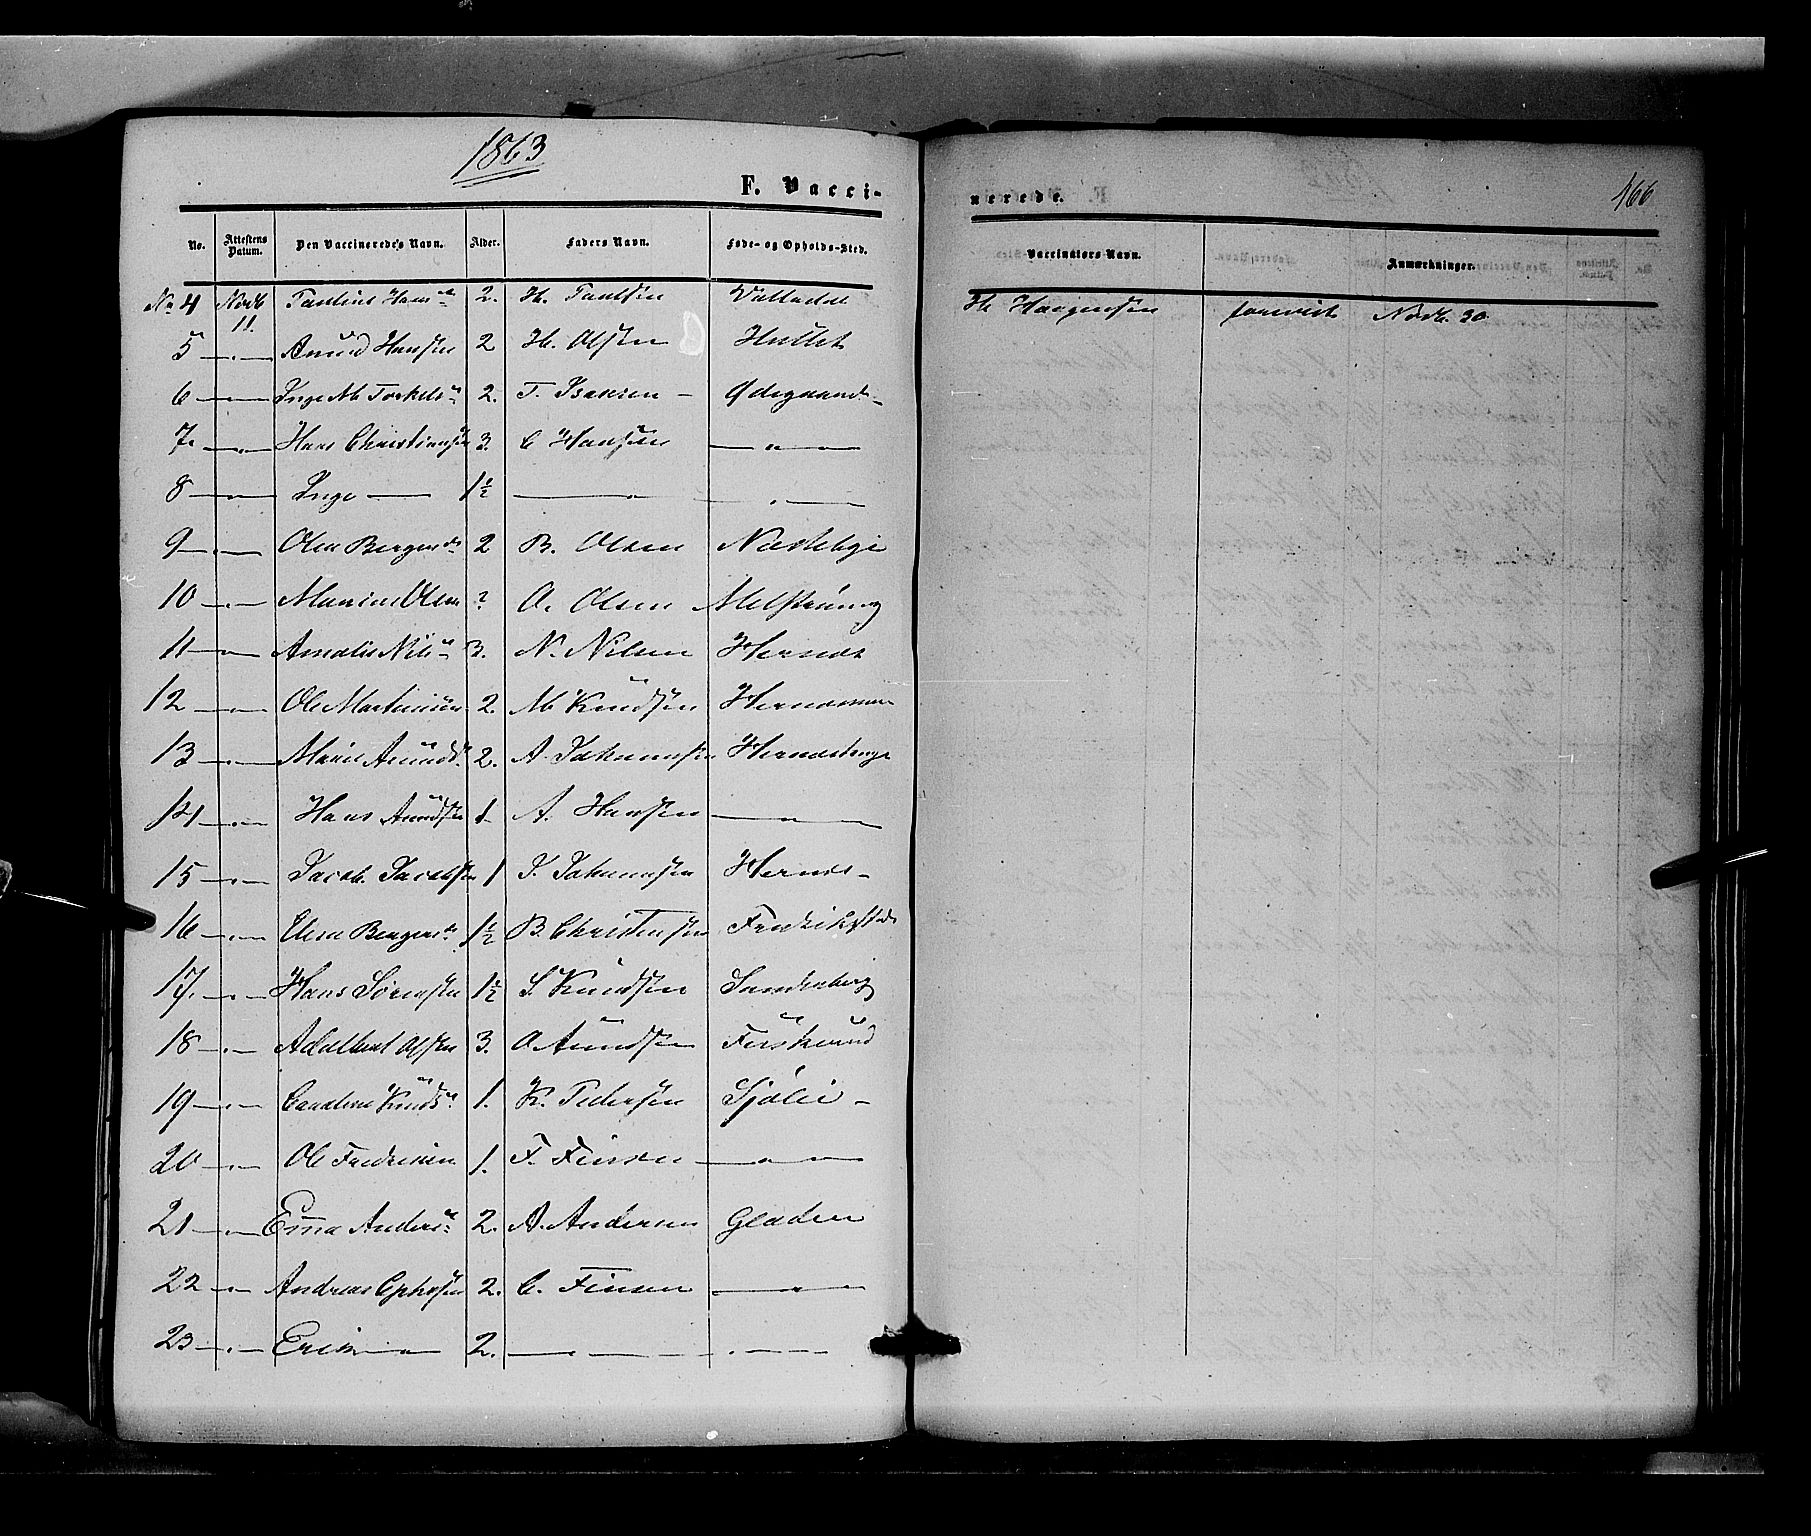 1863
F. Vacci-
No. Attestens Datum. Den Vaccineredes Navn. Alder. Faders Navn. Føde- og Opholds-Sted.
No 4 Novb 11. Pauline Hans 2. H. Paulsen
5 —"— Amund Hansen 2 H. Olsen Hullet
6 —"— Inge M Torkels 2. T. Isaksen — Ødegaard
7. —"— Hans Christiansen 3. C Hansen —"—
8 —"— Inge — 1½ —"— —"—
9 —"— Olea Bergers 2 B. Olsen Nordbye
10 —"— Marius Olsen ? O. Olsen
11 —"— Amalie Nils 3. N. Nilsen Hernæs
12 —"— Ole Martinsen 2. M Knudsen
13 —"— Marie Amunds 2. A. Johannsen
14 —"— Hans Amundsen 1 A. Hansen —"—
15 —"— Jacob Jacobsen 1 J. Johannsen Hernæs
16 —"— Elen Bergers 1½ B. Christensen Fredrikstad
17. —"— Hans Sørensen 1½ S. Knudsen Sandenberg
18 —"— Adelbert Olsen 3. O Amundsen
19 —"— Caroline Knuds 1. K. Pedersen Sjølie
20 —"— Ole Fredriksen 1. F. Finsen —"—
21 —"— Emma Anders 2. A. Andersen Gladen
22 —"— Andreas 2. C. Finsen —"—
23 —"— Erik —"— 2. —"— —"—
nerede.
466
Vaccinatørs Navn. Anmærkninger.
H. Haagensen forevist Novb. 30